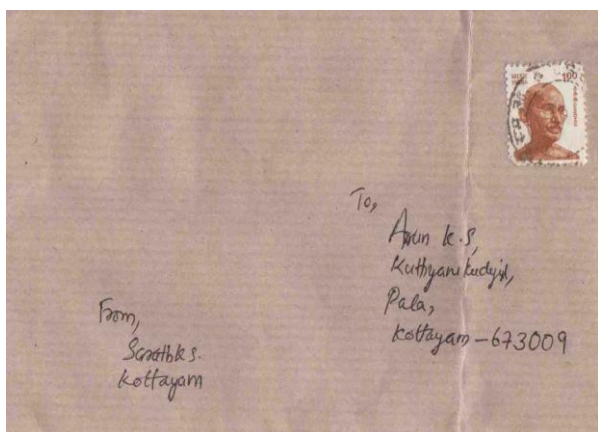 100
To,
Arun K.S,
Kuthyanikudyil,
Pala,
Kottayam-673009
From,
Sarath k s.
Kottayam